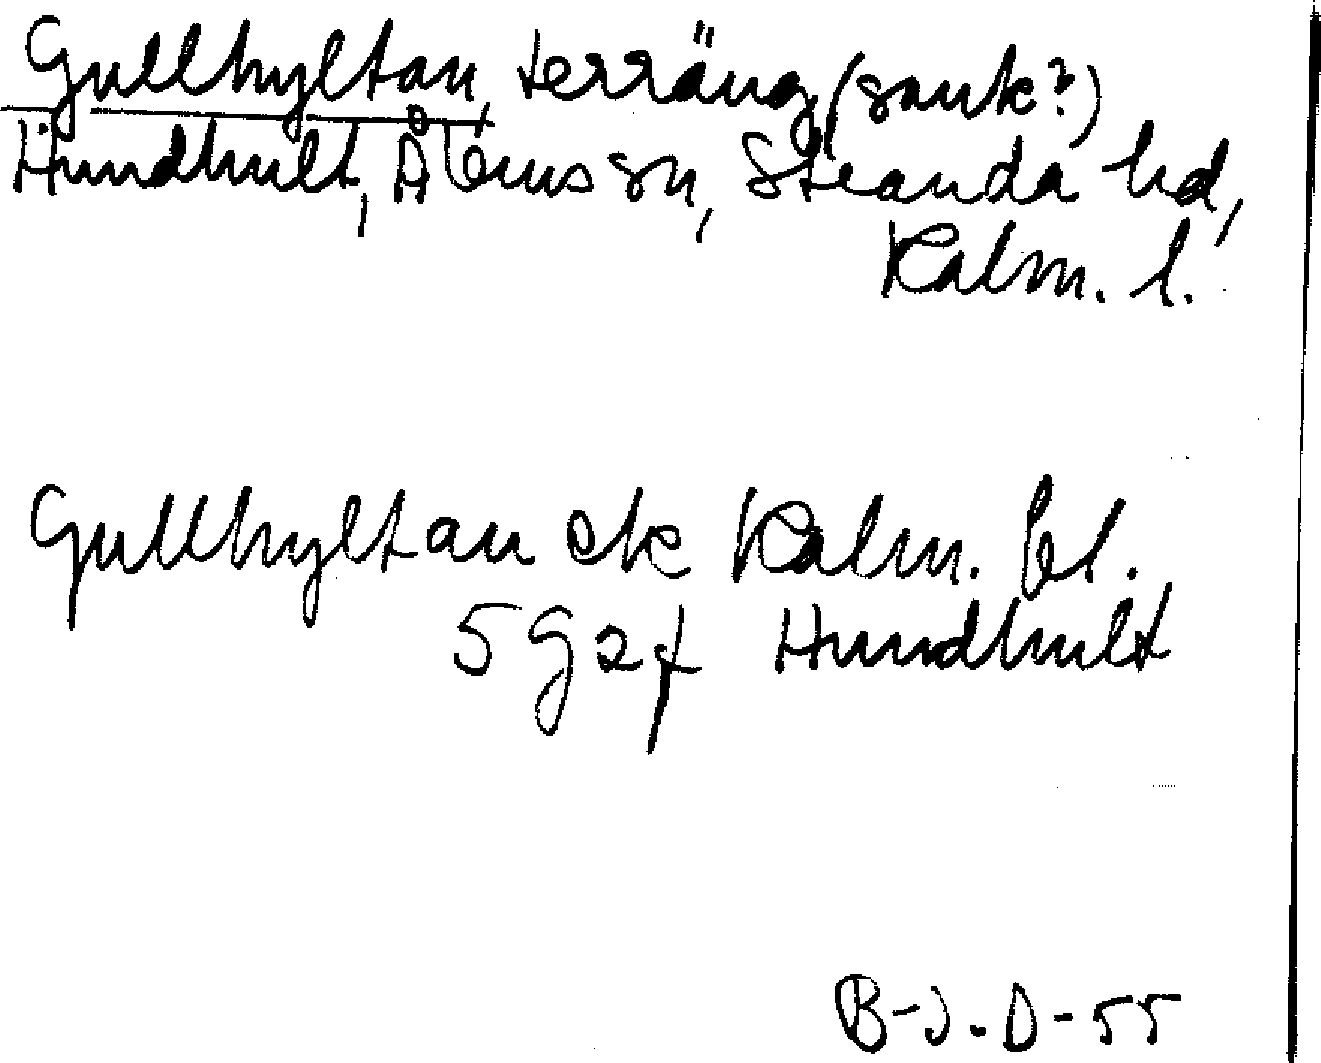 Gullhyltan, terräng (sank?)
Hundhult, Ålems sn, Stranda hd,
Kalm. l.
Gullhyltan ek Kalm. bl.
5 G 2 f Hundhult
B-J. D-55